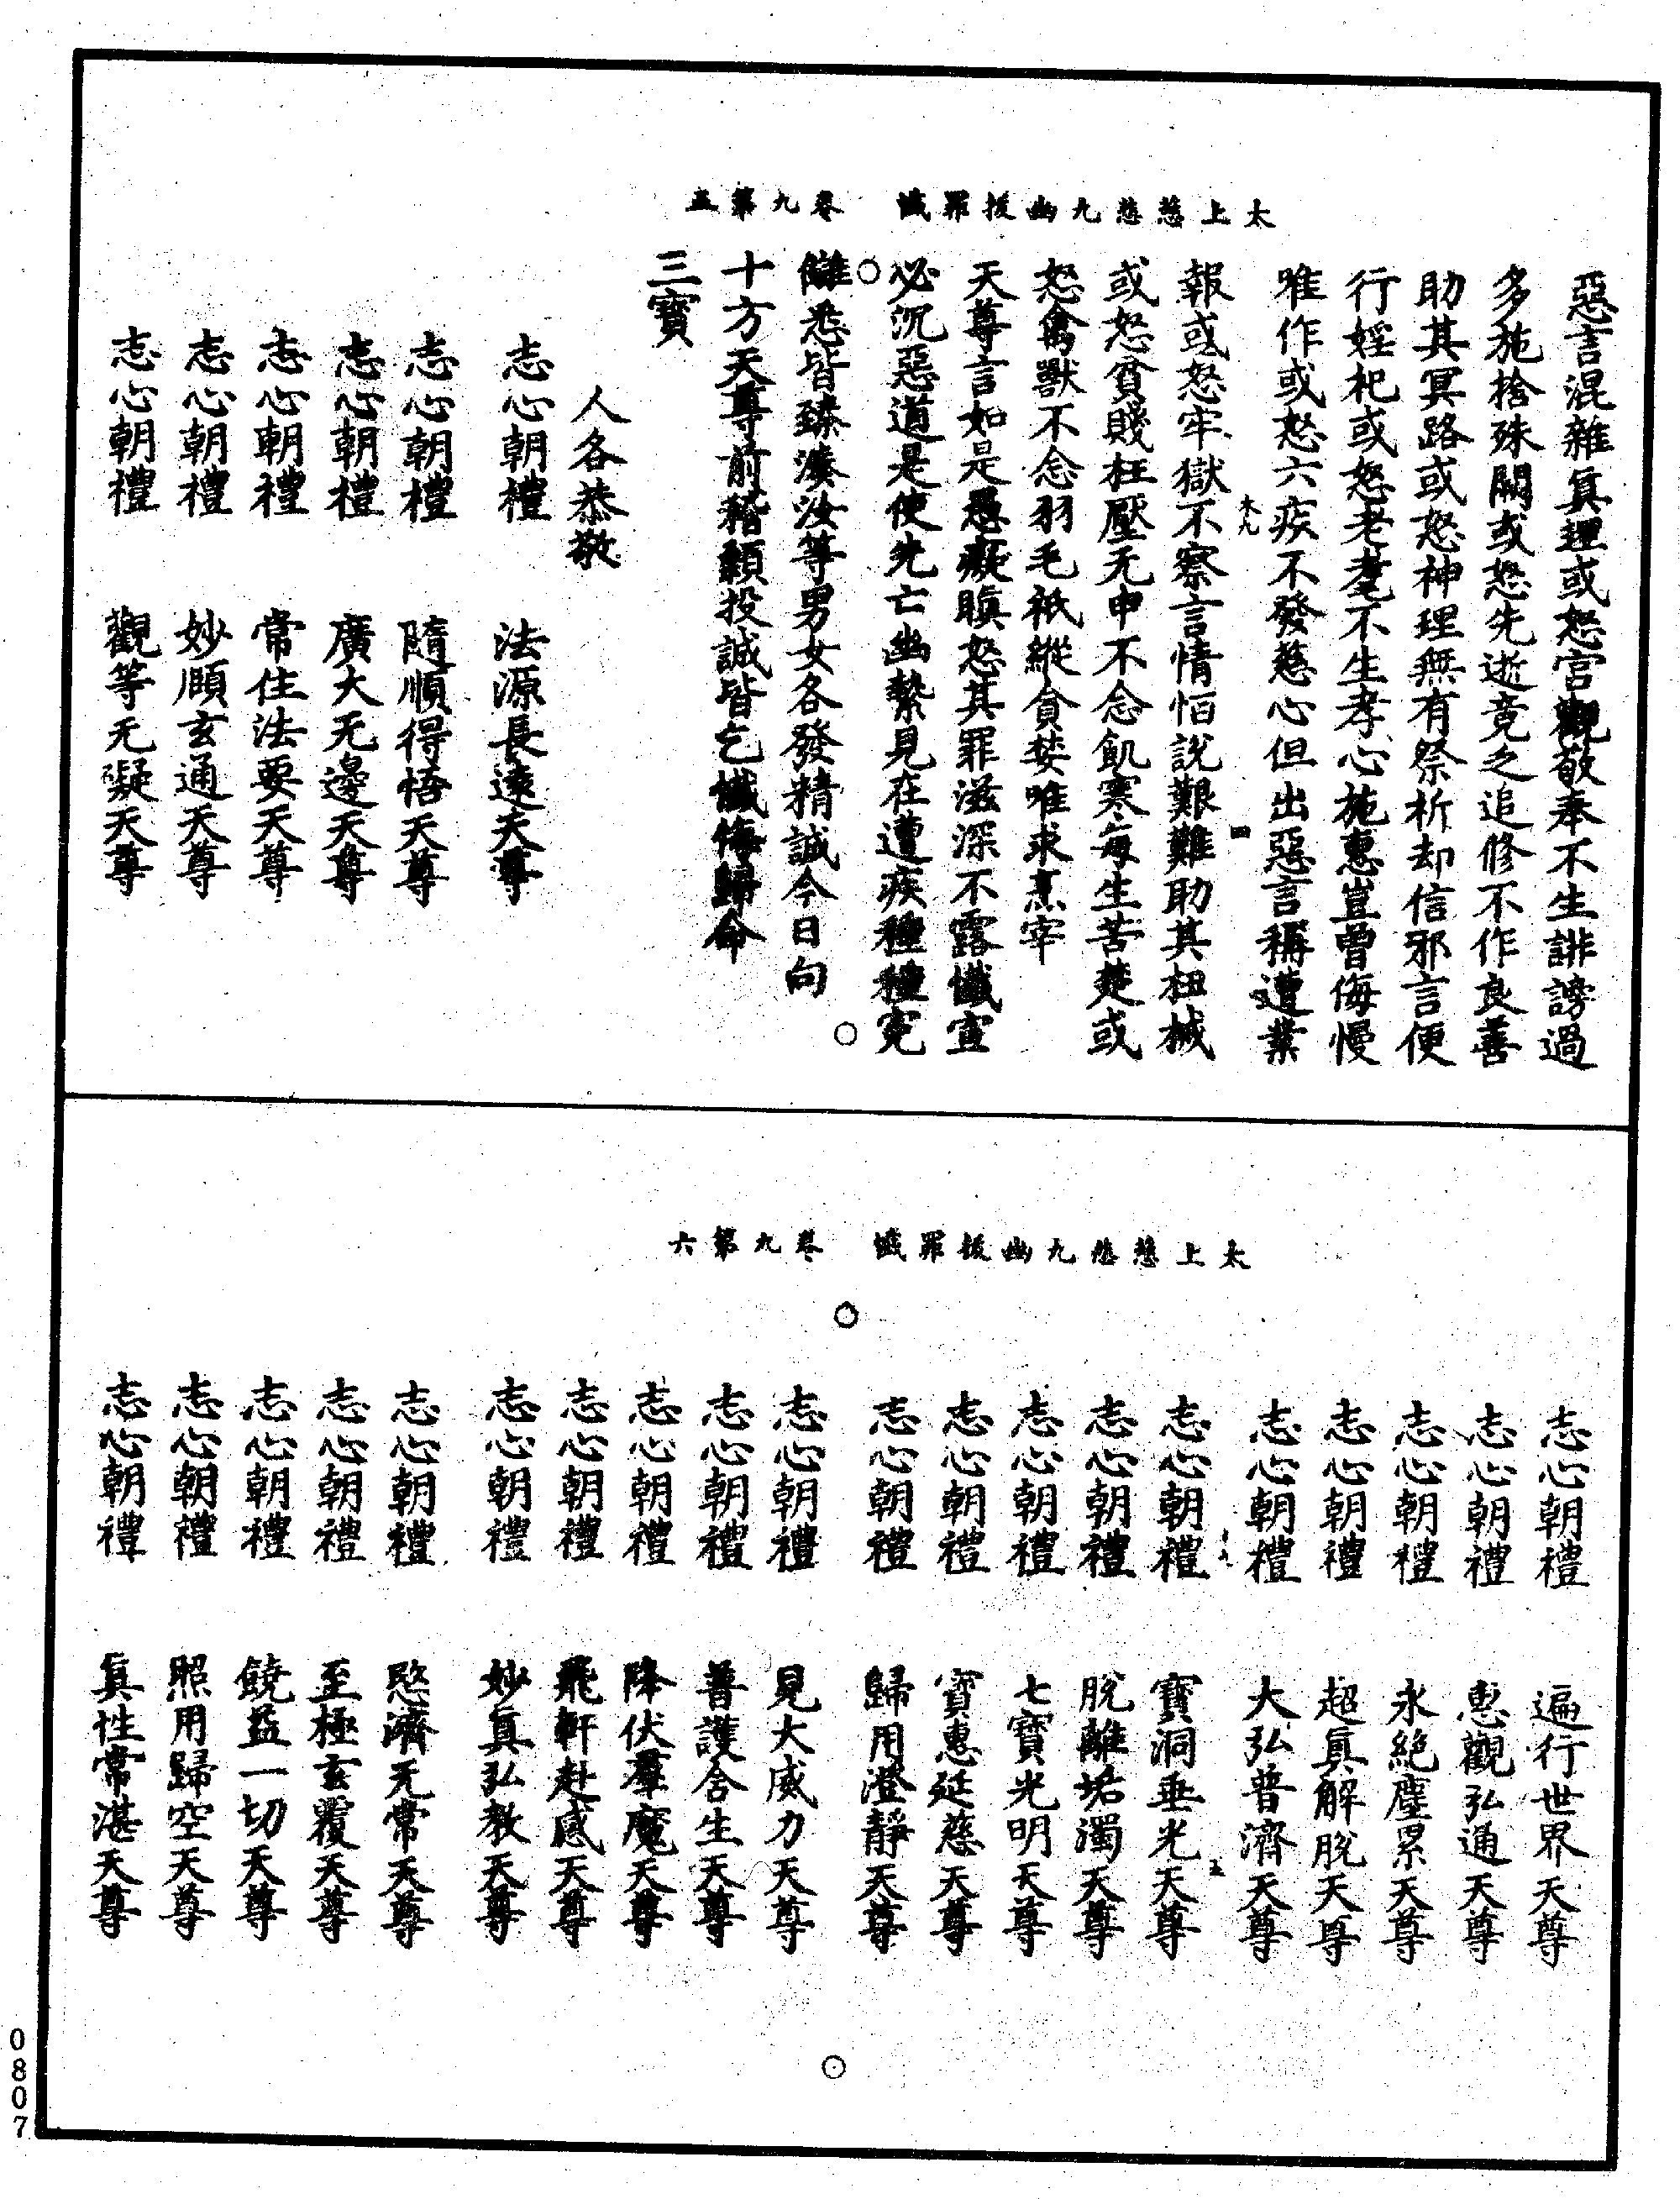 太上慈悲九幽拔罪懺　卷九第五
惡言混雜真理或怒宮觀敬奉不生誹謗過
多施捨殊關或怒先逝竟之追修不作良善
助其冥路或怒神理無有祭析却信邪言便
行婬祀或怒老耄不生孝心施惠豈曾侮慢
唯作或怒六疾不發慈心但出惡言稱遭業
木九
四
報或怒牢獄不察言情恒說艱難助其杻械
或怒貧賤枉壓无申不念飢寒每生苦楚或
怒禽獸不念羽毛祇縱貪婪唯求烹宰
天尊言如是愚癡瞋怒其罪滋深不露懺宣
必沉惡道是使先亡幽縶見在遭疾種種冤
讎悉皆臻湊汝等男女各發精誠今日向
十方天尊前稽顙投誠皆乞懺悔歸命
三寶
人各恭敬
志心朝禮　法源長遠天尊
志心朝禮　隨順得悟天尊
志心朝禮　廣大无邊天尊
志心朝禮　常住法要天尊
志心朝禮　妙願玄通天尊
志心朝禮　觀等无礙天尊
太上慈悲九幽拔罪懺　卷九第六
志心朝禮　遍行世界天尊
志心朝禮　惠觀弘通天尊
志心朝禮　永絕塵累天尊
志心朝禮　超真解脫天尊
志心朝禮　大弘普濟天尊
五
志心朝禮　寶洞垂光天尊
志心朝禮　脫離垢濁天尊
志心朝禮　七寶光明天尊
志心朝禮　寶惠延慈天尊
志心朝禮　歸用澄靜天尊
志心朝禮　見大威力天尊
志心朝禮　普護含生天尊
志心朝禮　降伏羣魔天尊
志心朝禮　飛軒赴感天尊
志心朝禮　妙真弘教天尊
志心朝禮　愍濟无常天尊
志心朝禮　至極玄覆天尊
志心朝禮　饒益一切天尊
志心朝禮　照用歸空天尊
志心朝禮　真性常湛天尊
0807